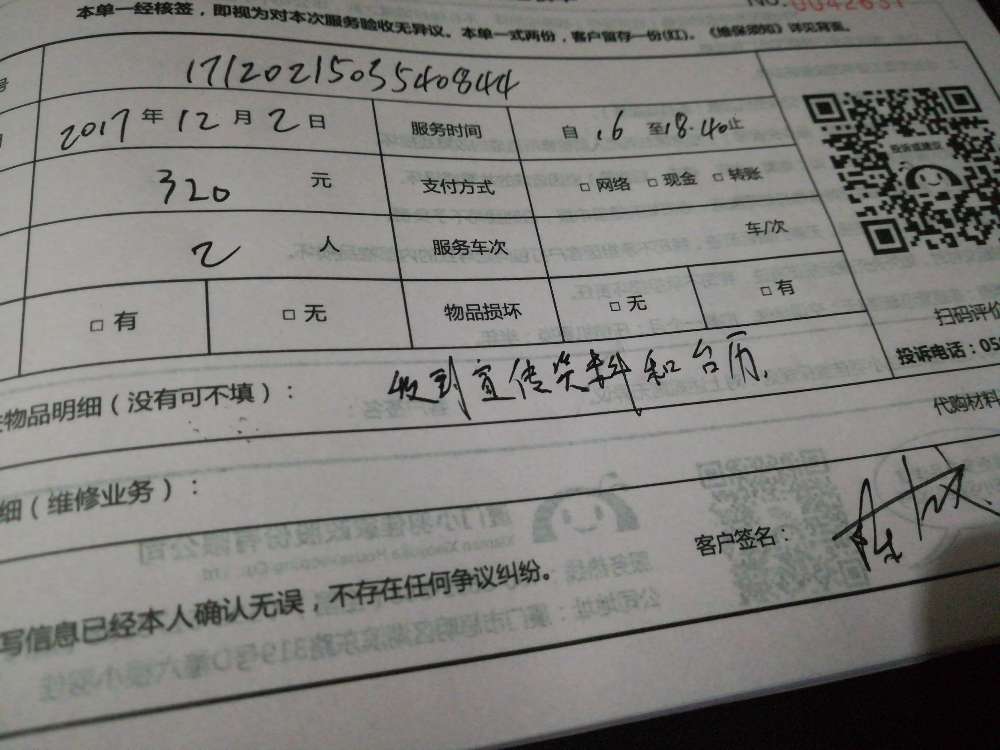 NO.0042631
本单一经核签，即视为对本次服务验收无异议。本单一式两份，客户留存一份(红)。《维保须知》详见背面。
号 171202150354084​4
2017年12月2日 服务时间 自16至18.40止
320元 支付方式 □网络 □现金 □转账
2人 服务车次 车/次
□有 □无 物品损坏 □无 □有
投诉或建议
扫码评价
投诉电话：05
物品明细（没有可不填）： 收到宣传资料和台历.
代购材料
细（维修业务）：
客户签名：
写信息已经本人确认无误，不存在任何争议纠纷。